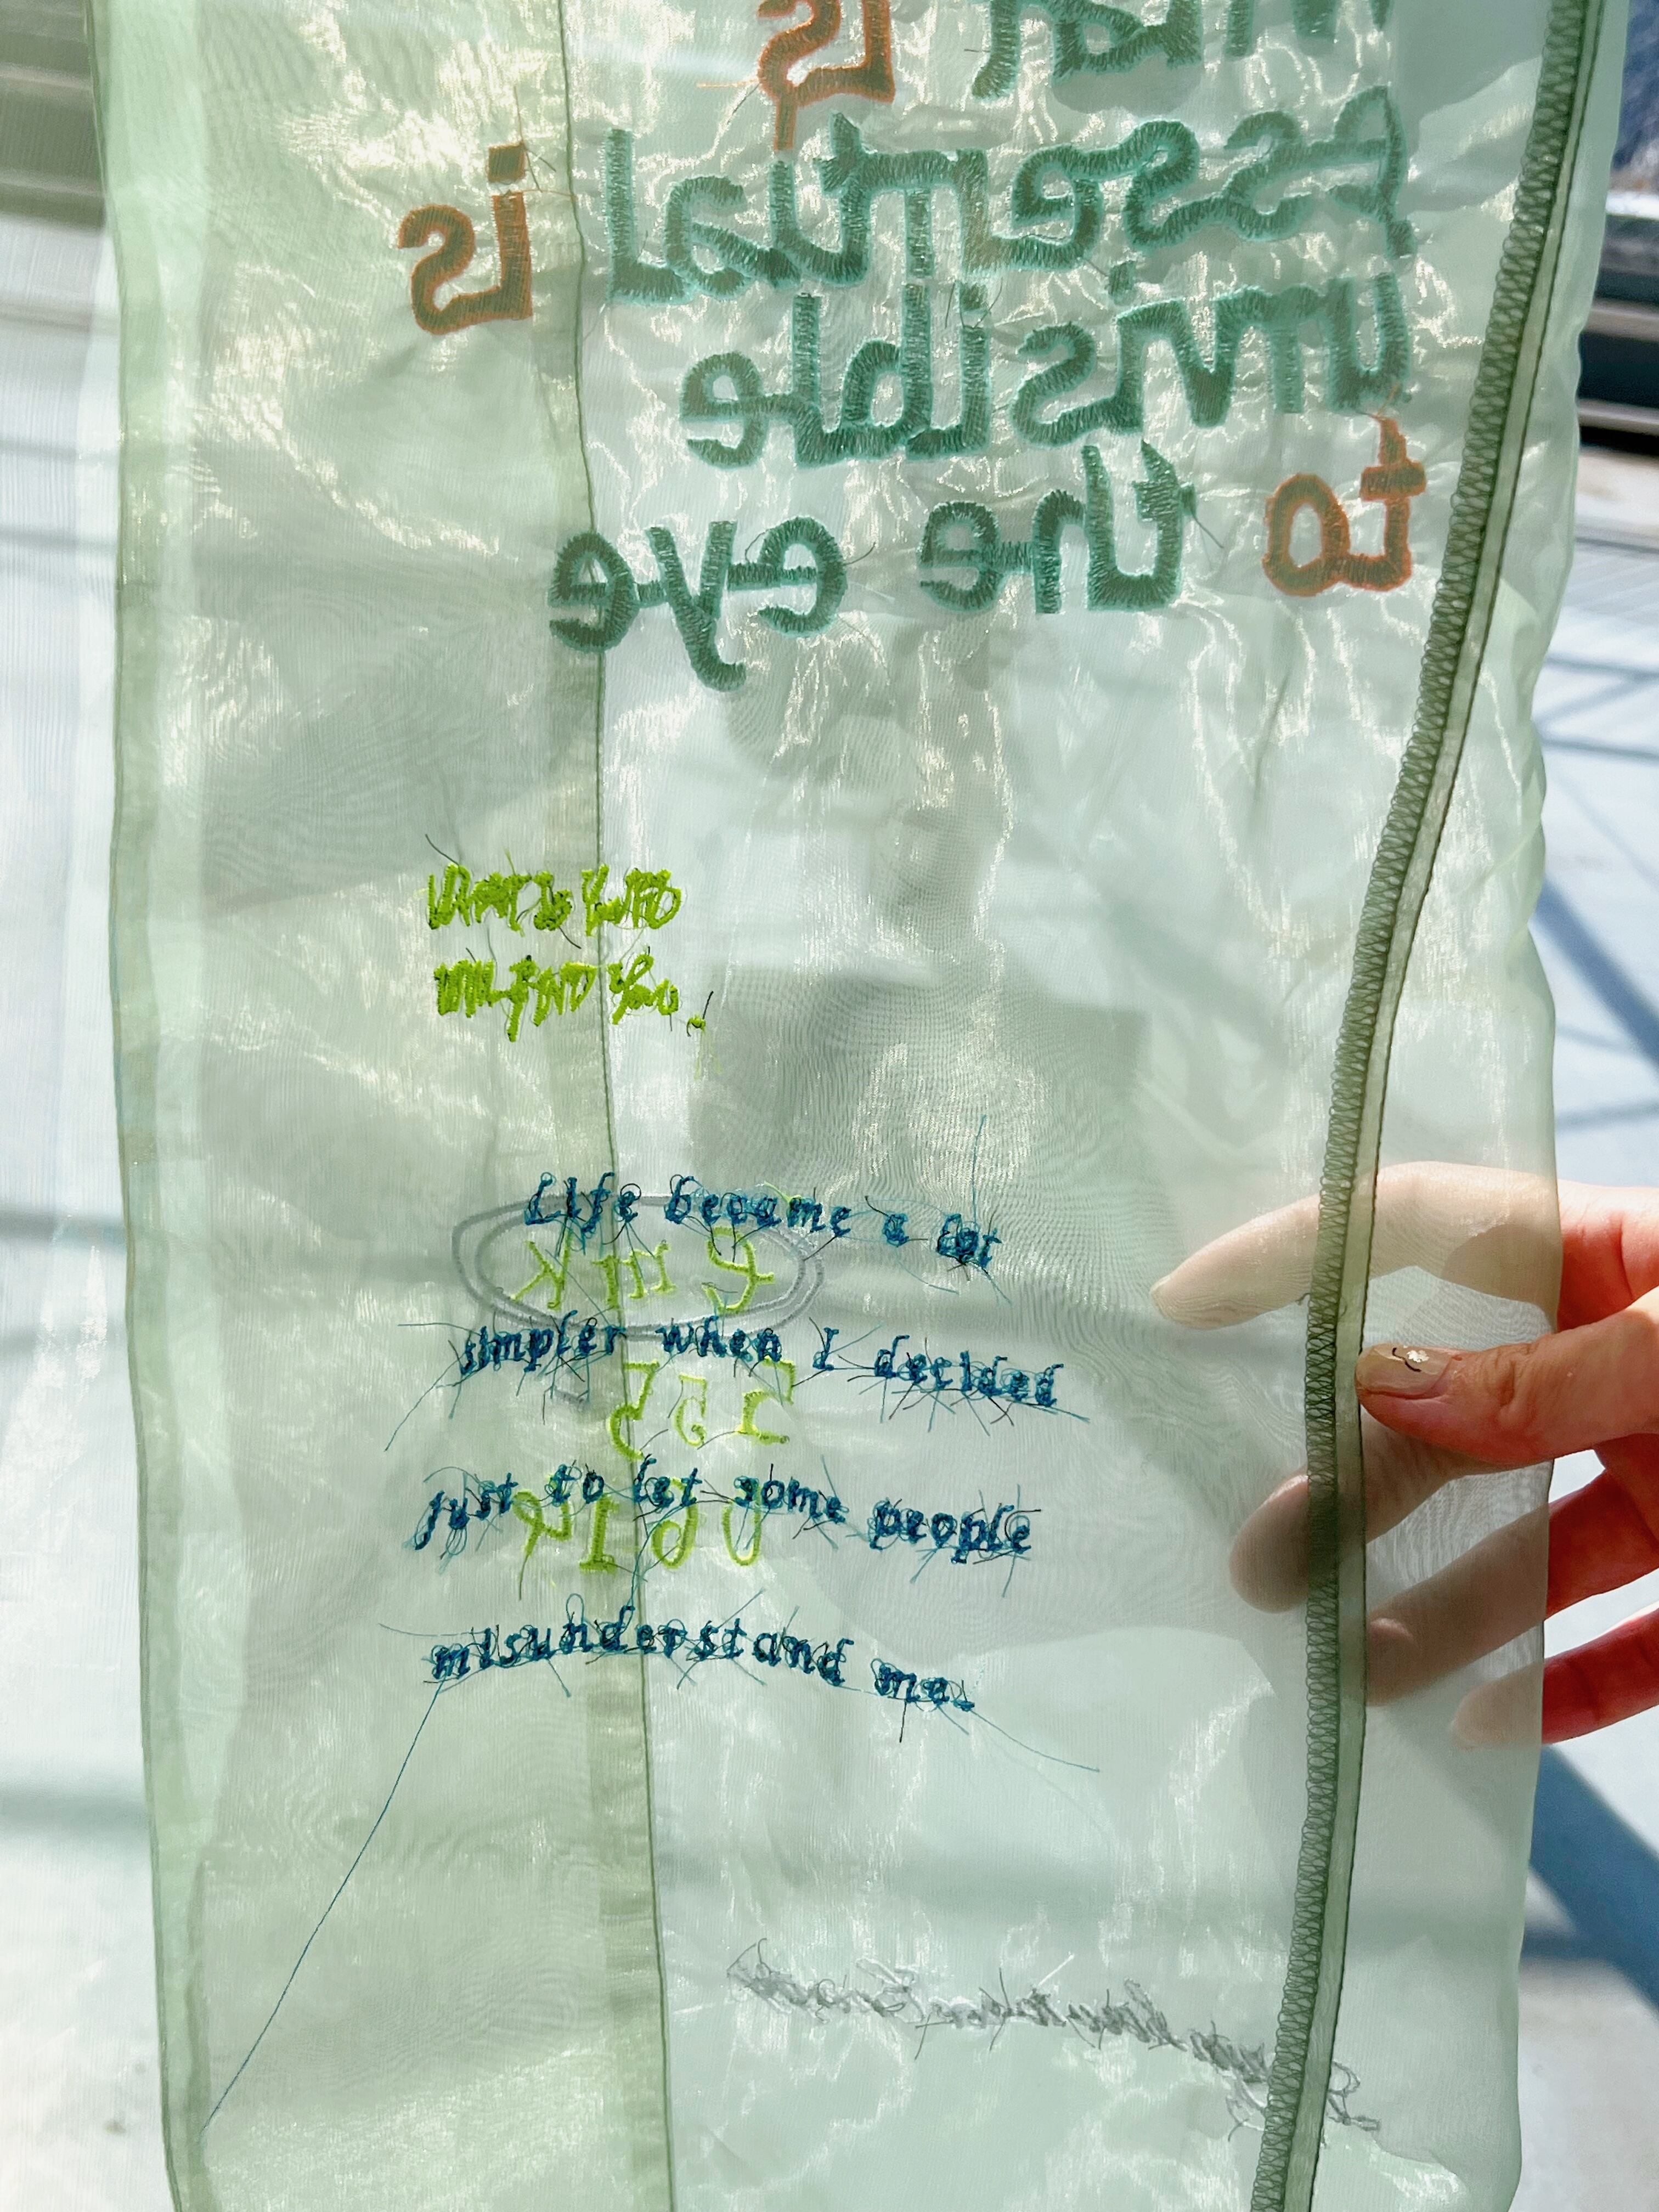 what is
essential is
invisible
to the eye
WHAT IS YOURS
WILL FIND YOU.
Life became a lot
simpler when I decided
just to let some people
misunderstand me.